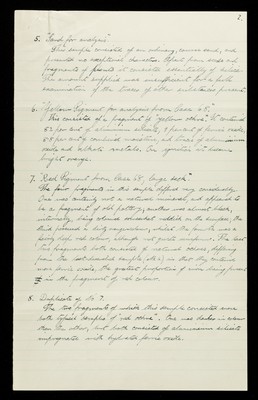 2.
5. "Sand for analysis"
This sample consisted of an ordinary, coarse sand, and
presented no exceptional characters. Apart from and
fragments of it consisted essentially of silica.
The amount supplied was insufficient for a full
examination of the traces of other substances present.
6. "Yellow Pigment for analysis from Case 68."
This consisted of a fragment of "yellow ochre". It contained
per cent of aluminium silicate, 9 per cent of ferric oxide,
per cent of combined moisture, and traces of
and alkali metals. On ignition it became
bright orange.
7. "Red Pigment from Case 68, large
The four fragments in this sample differed very considerably.
One was certainly not a natural mineral, and appeared to
be a fragment of old pottery; another was almost black
internally, being coloured chocolate reddish on the surface; the
third possessed a dirty colour, whilst the fourth was a
fairly deep red colour, although not quite uniform. The last
two fragments both consisted of natural ochres, differing
from the last-described sample (No. 6) in that they contained
more ferric oxide, the greatest proportion of iron being present
in the fragment of red colour.
8. Duplicate of No 7.
The two fragments of which this sample consisted were
both typical examples of "red ochre". One was darker in colour
than the other, but both consisted of aluminium silicate
impregnated with hydrated ferric oxide.